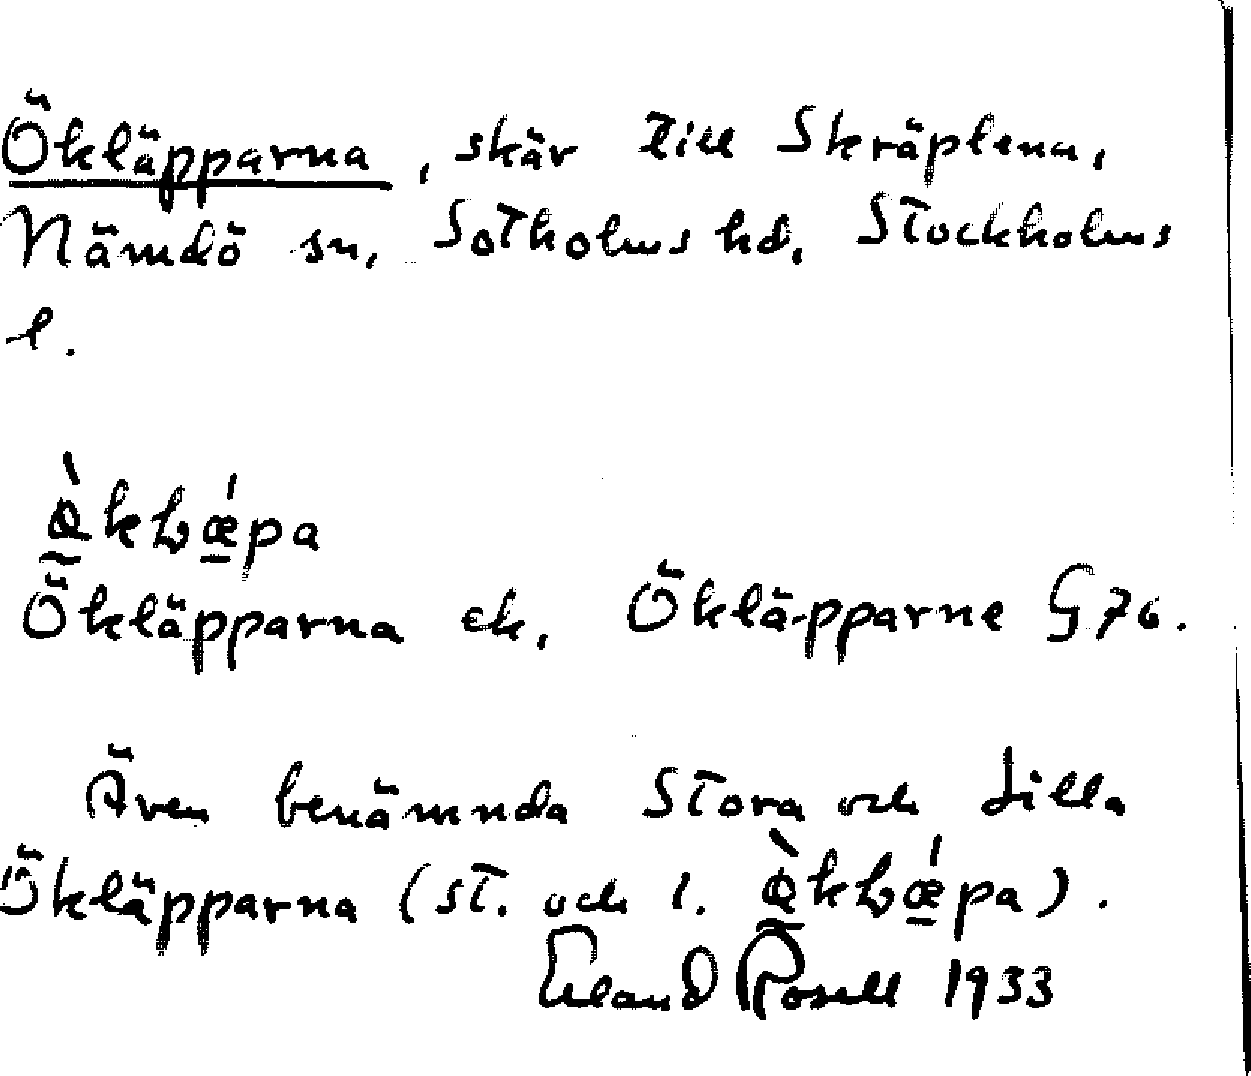 Ökläpparna, skär till Skräplena,
Nämdö sn, Sotholms hd, Stockholms
l.
Ökläpparna ek. Ökläpparne G 76.
Även benämnda Stora och Lilla
Ökläpparna (st. och l.
Erland Rosell 1933